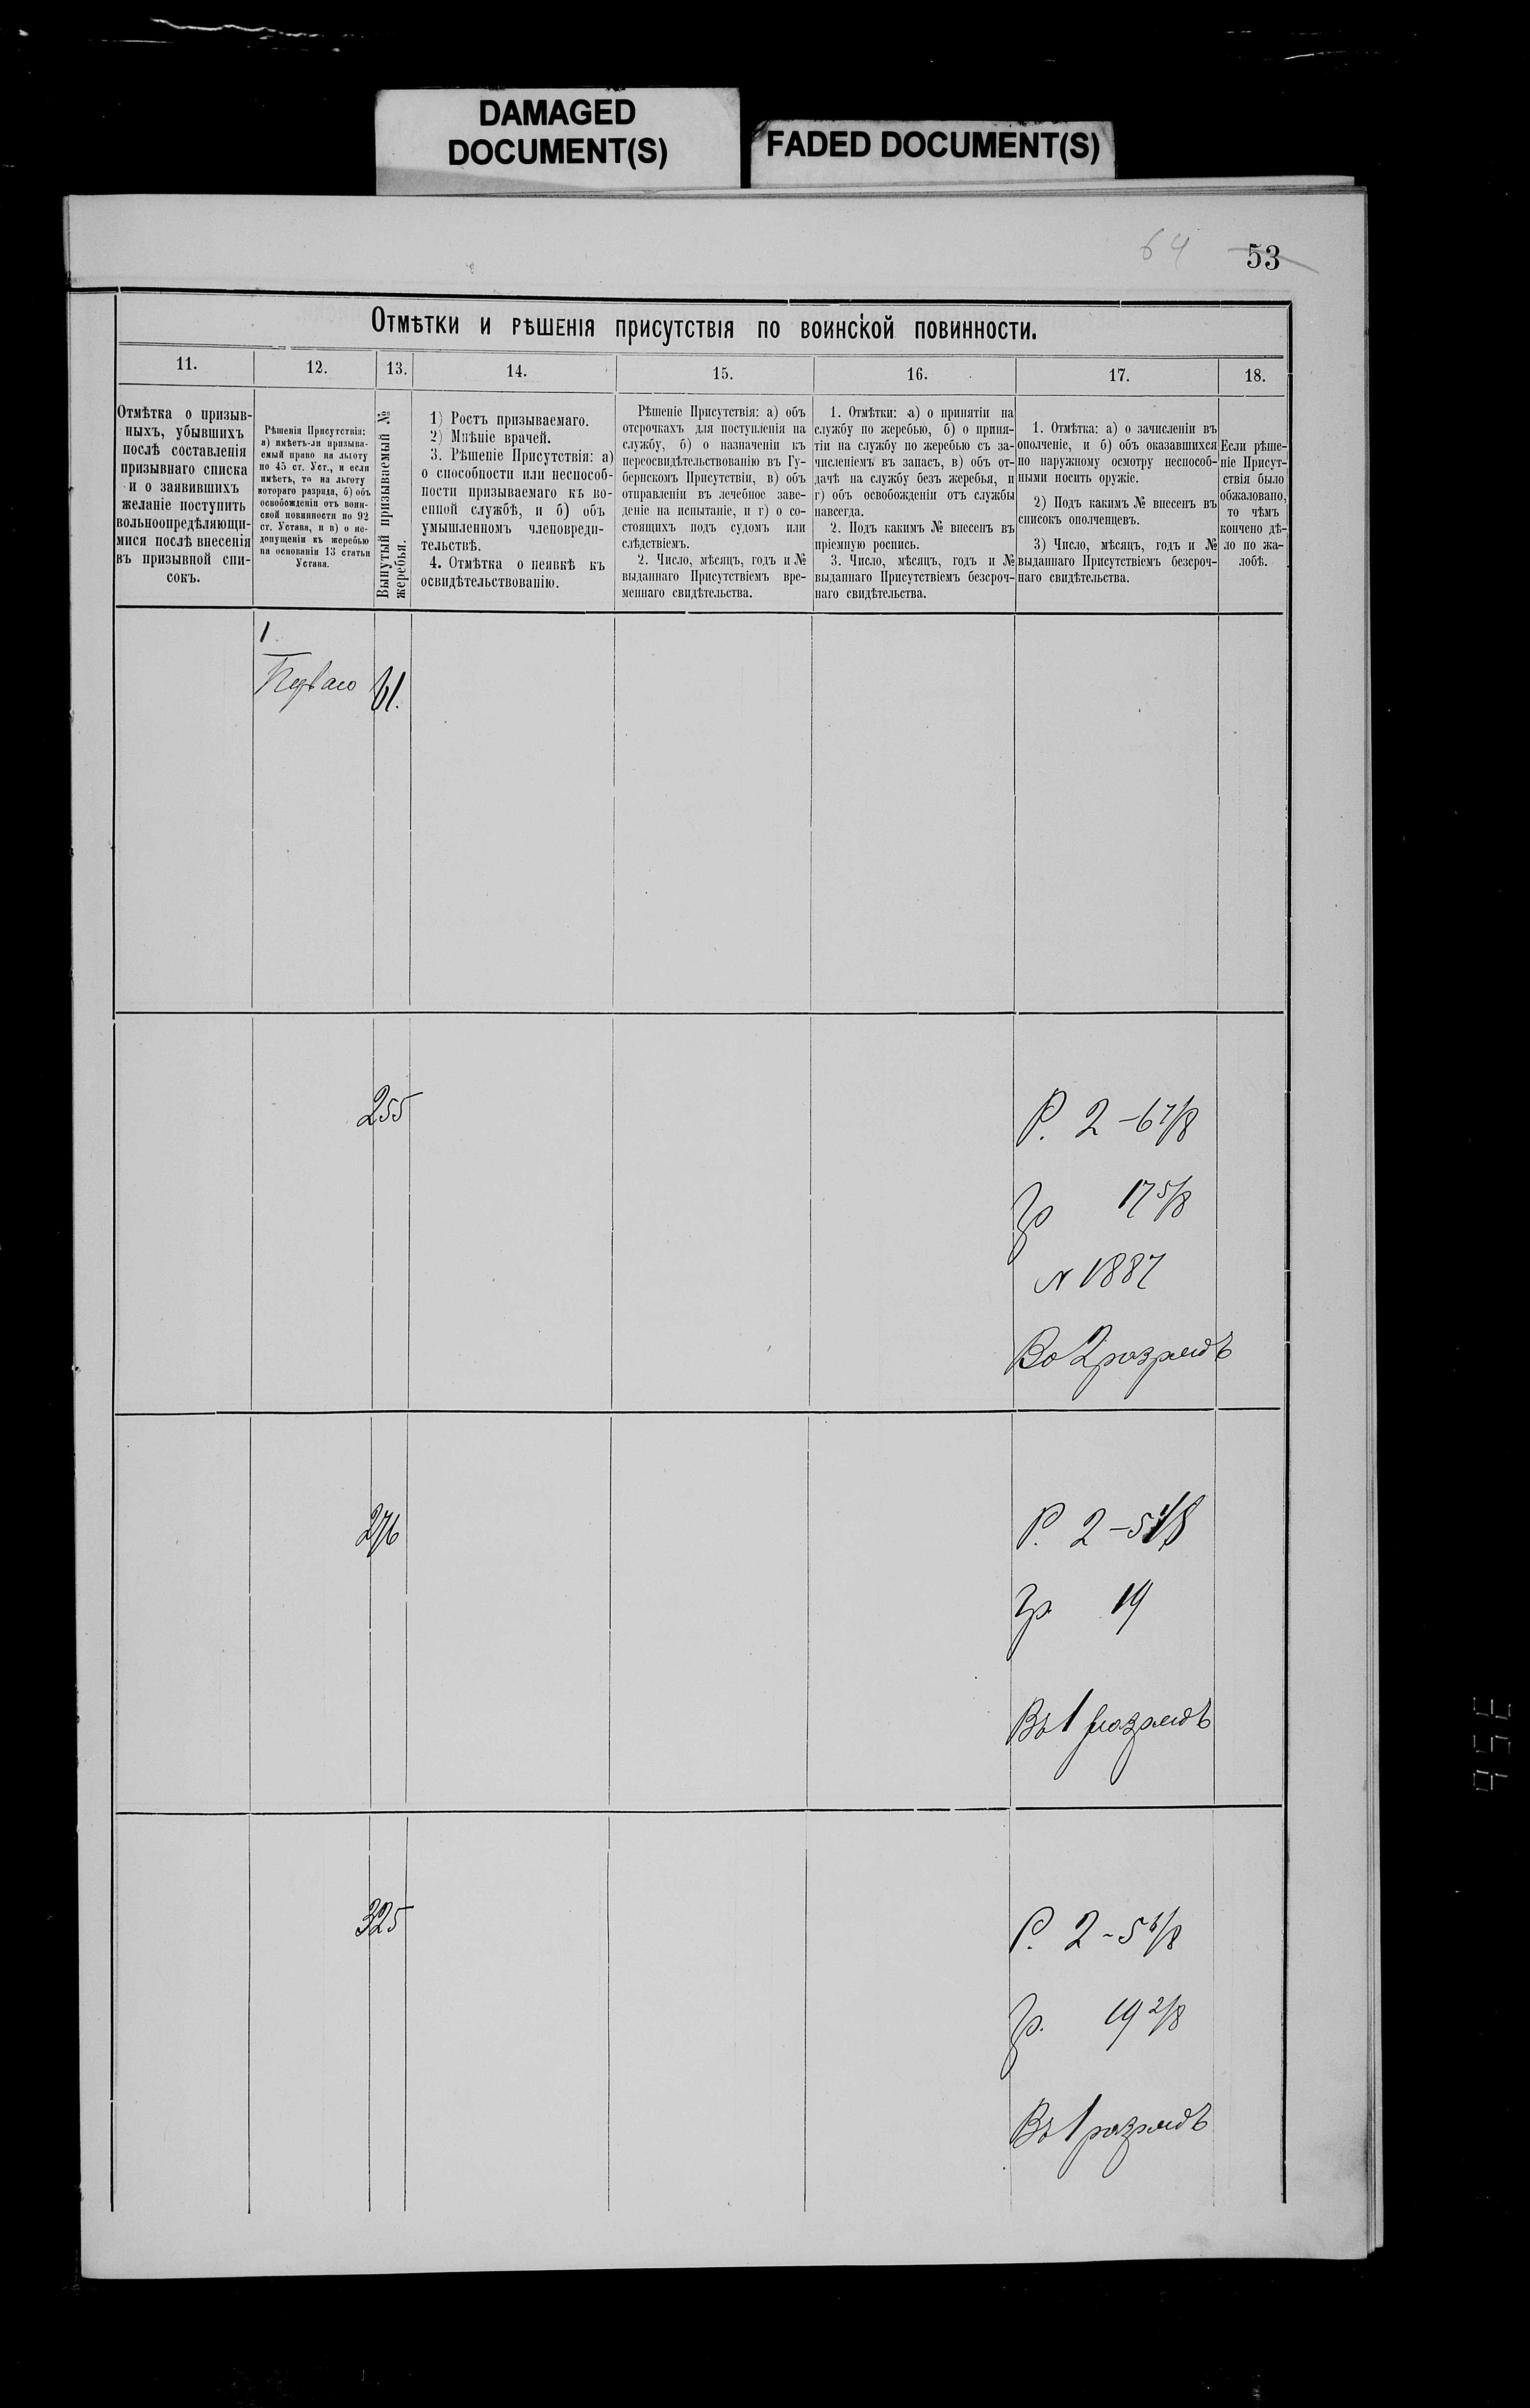 DAMAGED
DOCUMENT(S)
FADED DOCUMENT(S)
64 53
Отмѣтки и рѣшенія присутствія по воинской повинности.
11. 12. 13. 14. 15. 16. 17. 18.
Отмѣтка о призыв-
ныхъ, убывшихъ
послѣ составленія
призывнаго списка
и о заявившихъ
желаніе поступить
вольноопредѣляющи-
мися послѣ внесенія
въ призывной спи-
сокъ.
Рѣшенія Присутствія:
а) имѣетъ-ли призыва-
емый право на льготу
по 45 ст. Уст., и если
имѣетъ, то на льготу
котораго разряда, б) объ
освобожденіи отъ воин-
ской повинности по 92
ст. Устава, и в) о не-
допущеніи къ жеребью
на основаніи 13 статьи
Устава.
Вынутый призываемый №
жеребья.
1) Ростъ призываемаго.
2) Мнѣніе врачей.
3. Рѣшеніе Присутствія: а)
о способности или неспособ-
ности призываемаго къ во-
енной службѣ, и б) объ
умышленномъ членовреди-
тельствѣ.
4. Отмѣтка о неявкѣ къ
освидѣтельствованію.
Рѣшеніе Присутствія: а) объ
отсрочкахъ для поступленія на
службу, б) о назначеніи къ
переосвидѣтельствованію въ Гу-
бернскомъ Присутствіи, в) объ
отправленіи въ лечебное заве-
деніе на испытаніе, и г) о со-
стоящихъ подъ судомъ или
слѣдствіемъ.
2. Число, мѣсяцъ, годъ и №
выданнаго Присутствіемъ вре-
меннаго свидѣтельства.
1. Отмѣтки: а) о принятіи на
службу по жеребью, б) о приня-
тіи на службу по жеребью съ за-
численіемъ въ запасъ, в) объ от-
дачѣ на службу безъ жеребья, и
г) объ освобожденіи отъ службы
навсегда.
2. Подъ какимъ № внесенъ въ
пріемную роспись.
3. Число, мѣсяцъ, годъ и №
выданнаго Присутствіемъ безсроч-
наго свидѣтельства.
1. Отмѣтка: а) о зачисленіи въ
ополченіе, и б) объ оказавшихся
по наружному осмотру неспособ-
ными носить оружіе.
2) Подъ какимъ № внесенъ въ
списокъ ополченцевъ.
3) Число, мѣсяцъ, годъ и №
выданнаго Присутствіемъ безсроч-
наго свидѣтельства.
Если рѣше-
ніе Присут-
ствія было
обжаловано,
то чѣмъ
кончено дѣ-
ло по жа-
лобѣ.
1
Перваго 61.
255
Р. 2-6 7/8
Гр 17 5/8
N 1887
Во 2 разрядъ
276
Р. 2-5 1/8
Гр 19
Въ 1 разрядъ
325
Р. 2-5 6/8
Гр. 19 2/8
Въ 1 разрядъ